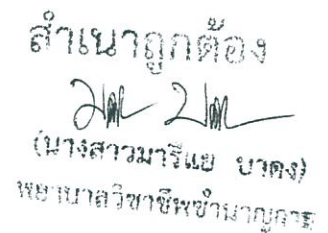 สำเนาถูกต้อง
(นางสาวมารีแย บาคง)
พยาบาลวิชาชีพชำนาญการ